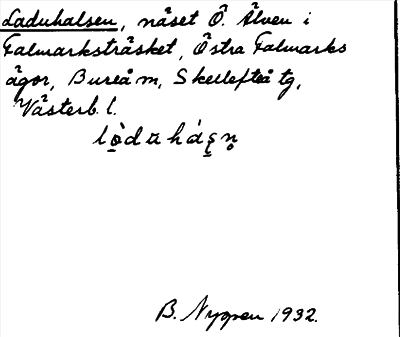 Laduhalsen, näset Ö. Älven i
Falmarksträsket, Östra Falmarks
ägor, Bureå m, Skellefteå tg,
Västerb. l.
B. Nygren 1932.